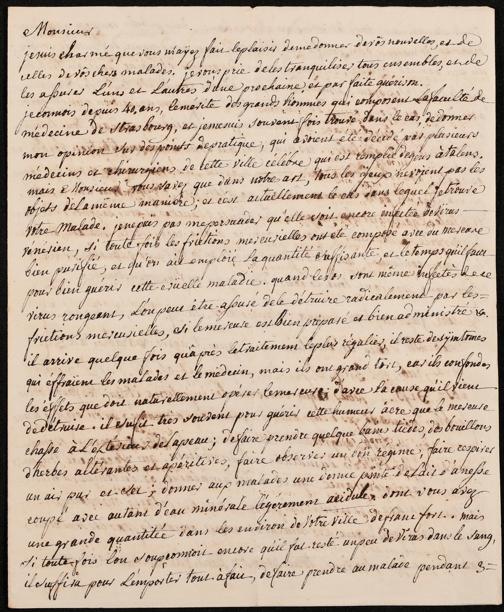 Monsieur
je suis charmé que vous m'ayés fait le plaisir de me donner de vos nouvelles, et de
celles de vos chers malades, je vous prie de les tranquiliser tous ensembles, et de
les assurer l'un et l'autres d'une prochaine, et parfaite guérison.
je connois depuis 40, ans, le mérite des grands hommes qui composent la faculté de
médecine de Strasbourg, et je me suis souvent fois trouvé dans le cas, de donner
mon opinion sur des points de pratique, qui avoient été décidé par plusieurs
médecins et chirurgiens de cette ville célebre, qui est remplie de gens à talens.
mais Monsieur vous savez que dans notre art, tous les yeux ne voyent pas les
objets de la même maniere, et c'est actuellement le cas dans lequel se trouve
votre malade. je ne puis pas me persuader qu'elle soit encore infectée de virus
vénérien, si toute fois les frictions mercurielles ont été composé avec un mercure
bien purifié, et qu'on aie emploié la quantité suffisante, et le temps qu'il faut
pour bien guérir cette cruelle maladie. quand les os sont même infectés de ce
virus rongeant, l'on peut être assuré de le détruire radicalement par les
frictions mercurielles, si le mercure est bien préparé et bien administré &.
il arrive quelque fois qu'après le traitement le plus régulier, il reste des simtomes
qui effraient les malades et le médecin, mais ils ont grand tort, car ils confondent
les effets que doit naturellement opérer le mercure, d'avec la cause qu'il vient
de détruire. il sufit très souvent pour guérir cette humeur acre que le mercure
chasse à l'extérieur de la peau; de faire prendre quelque bains tiédes, des bouillons
d'herbes altérantes et apéritives, faire observer un bon regime, faire respirer
un air pur et sec; donner aux malades une bonne pinte de lait d'anesse
coupé avec autant d'eau minérale légerement acidule, dont vous avez
une grande quantitée dans les environs de votre ville de francfort. mais
si toute fois l'on soupçonnoit encore qu'il fut resté un peu de virus dans le sang,
il suffira pour l'emporter tout à fait, de faire prendre au malade pendant 3-